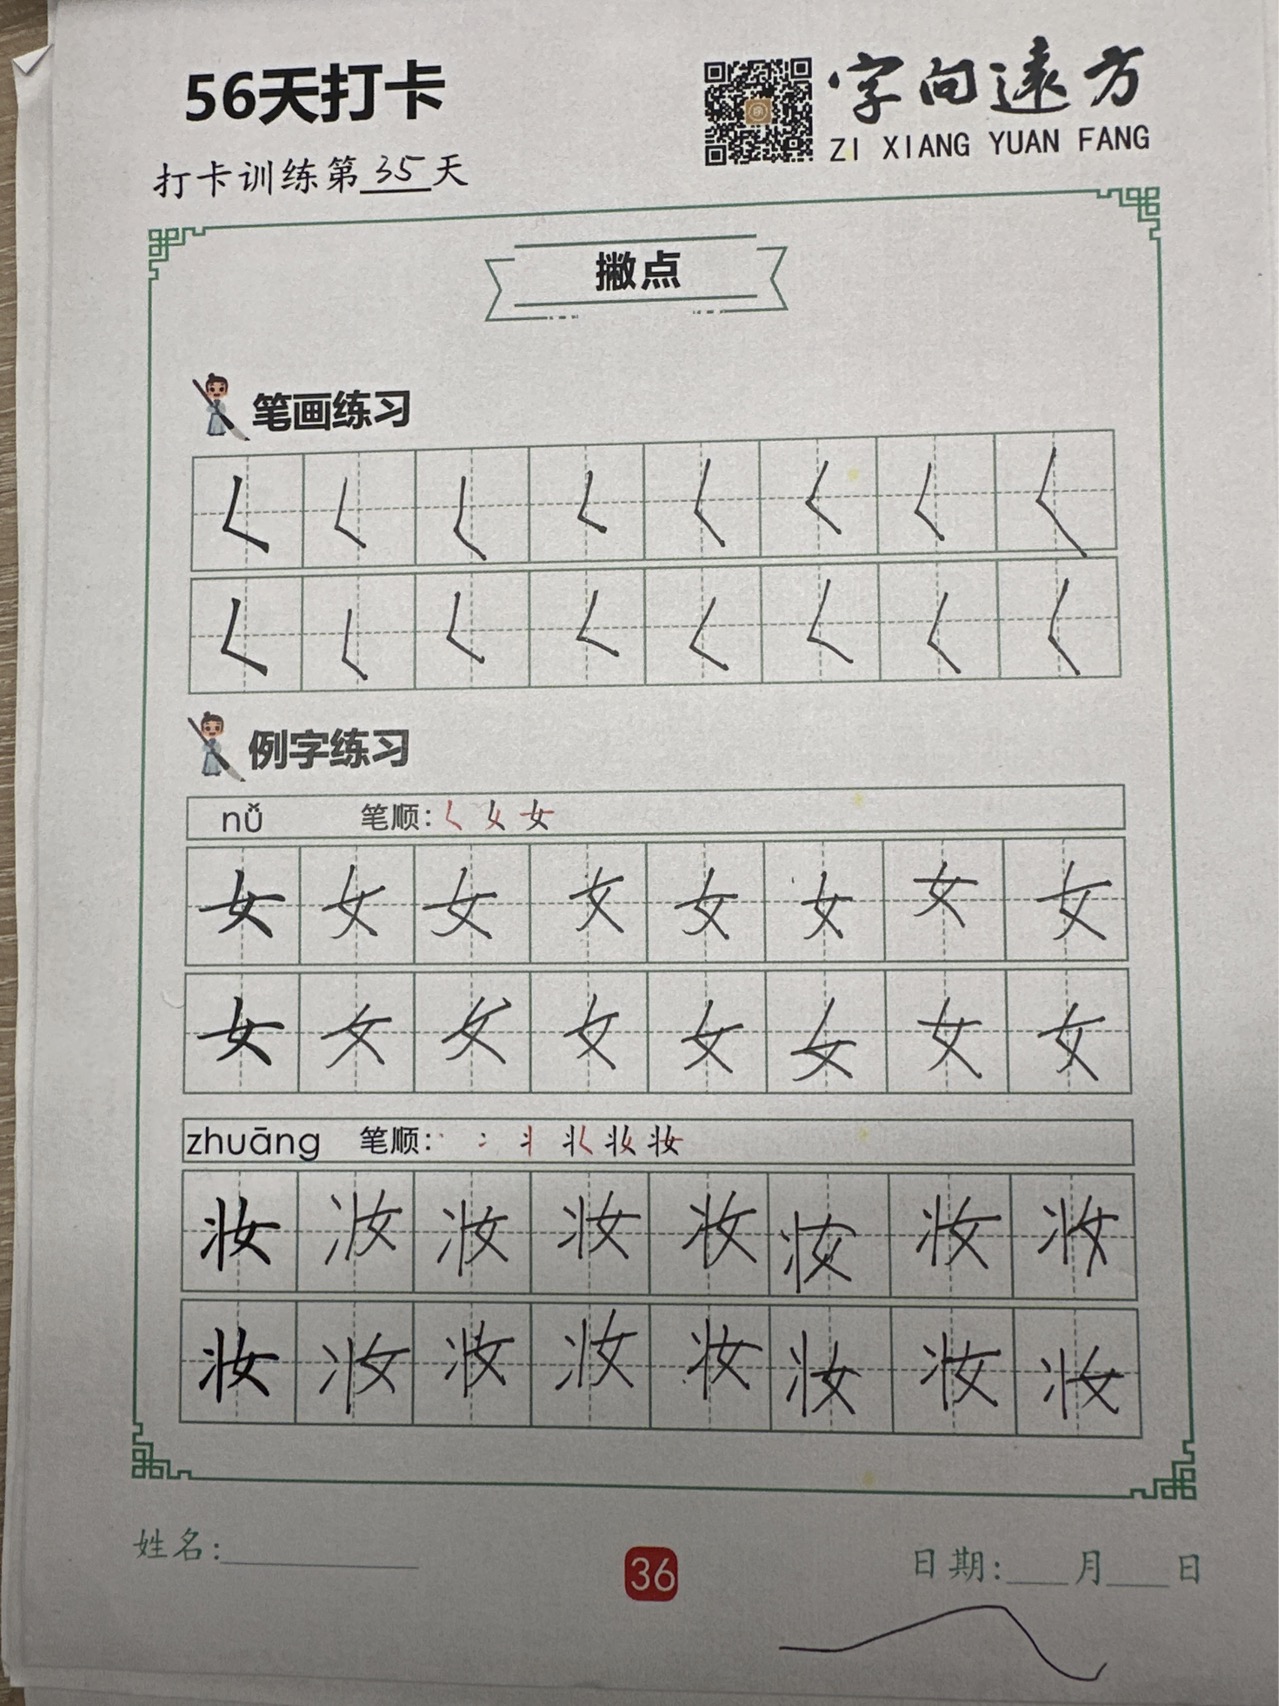 56天打卡
字向遠方
ZI XIANG YUAN FANG
打卡训练第35天
撇点
笔画练习
𡿨 𡿨 𡿨 𡿨 𡿨 𡿨 𡿨 𡿨
𡿨 𡿨 𡿨 𡿨 𡿨 𡿨 𡿨 𡿨
例字练习
nǚ 笔顺: 𡿨 女 女
女 女 女 女 女 女 女 女
女 女 女 女 女 女 女 女
zhuāng 笔顺: 丶 冫 丬 丬𡿨 妆 妆
妆 妆 妆 妆 妆 妆 妆 妆
妆 妆 妆 妆 妆 妆 妆 妆
姓名:
36
日期: 月 日